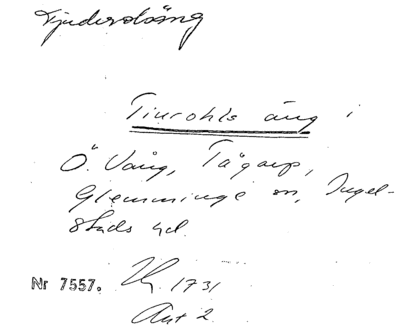 Tjuderslång
Tiurohls äng i
Ö. Vång, Tågarp,
Glemminge sn, Ingel-
stads hd.
Nr 7557. 1731
Akt 2